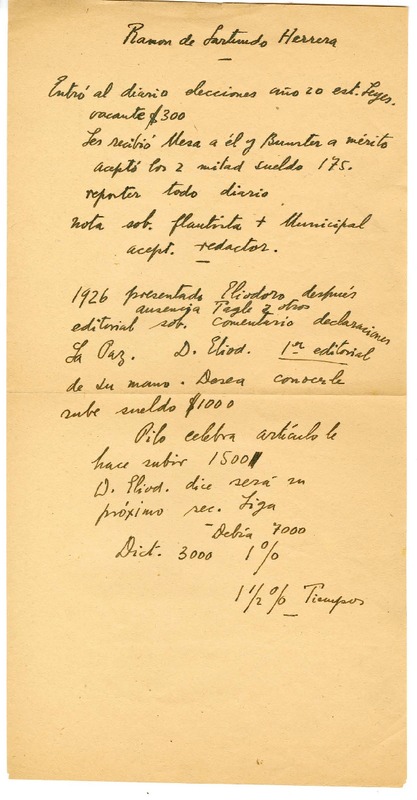 Ramon de Lartundo Herrera
Entró al diario elecciones año 20 est. Leyes.
vacante $300
Les recibió Mesa a él y Bunster a mérito
aceptó los 2 mitad sueldo 175.
reporter todo diario
nota sob. flautista + Municipal
acept. redactor.
1926 presentado Eliodoro después
ausencia Tagle y otros
editorial sob. comentario declaraciones
La Paz. D. Eliod. 1er editorial
de su mano. Desea conocerle
sube sueldo $1000
Pilo celebra artículo le
hace subir 1500
D. Eliod. dice será su
próximo sec. Liga
- Debía 7000
Dict. 3000 1%
1 1/2 % Tiempos